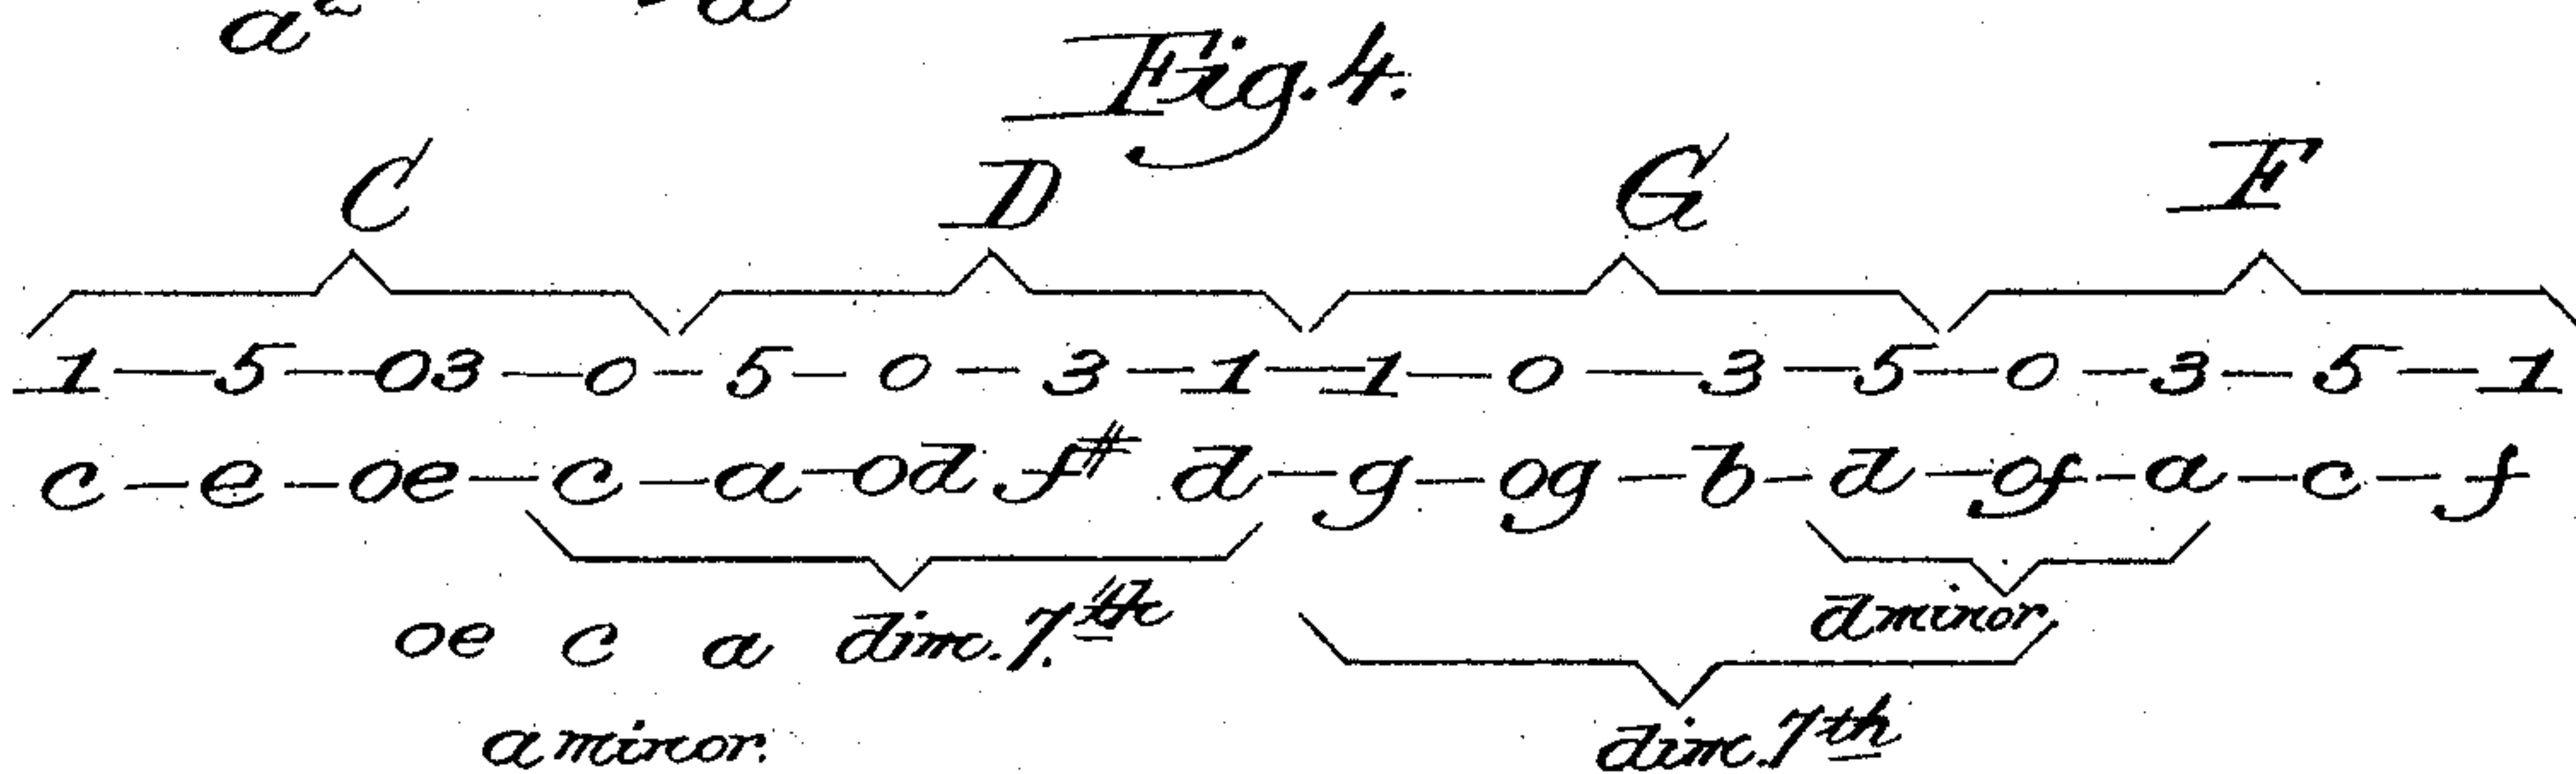 Fig. 4.
C D G F
1—5—03—0—5—0—3—1—1—0—3—5—0—3—5—1
c—e—oe—c—a—od f# d—g—og—b—d—of—a—c—f
oe c a dim. 7th
d minor
a minor.
dim. 7th